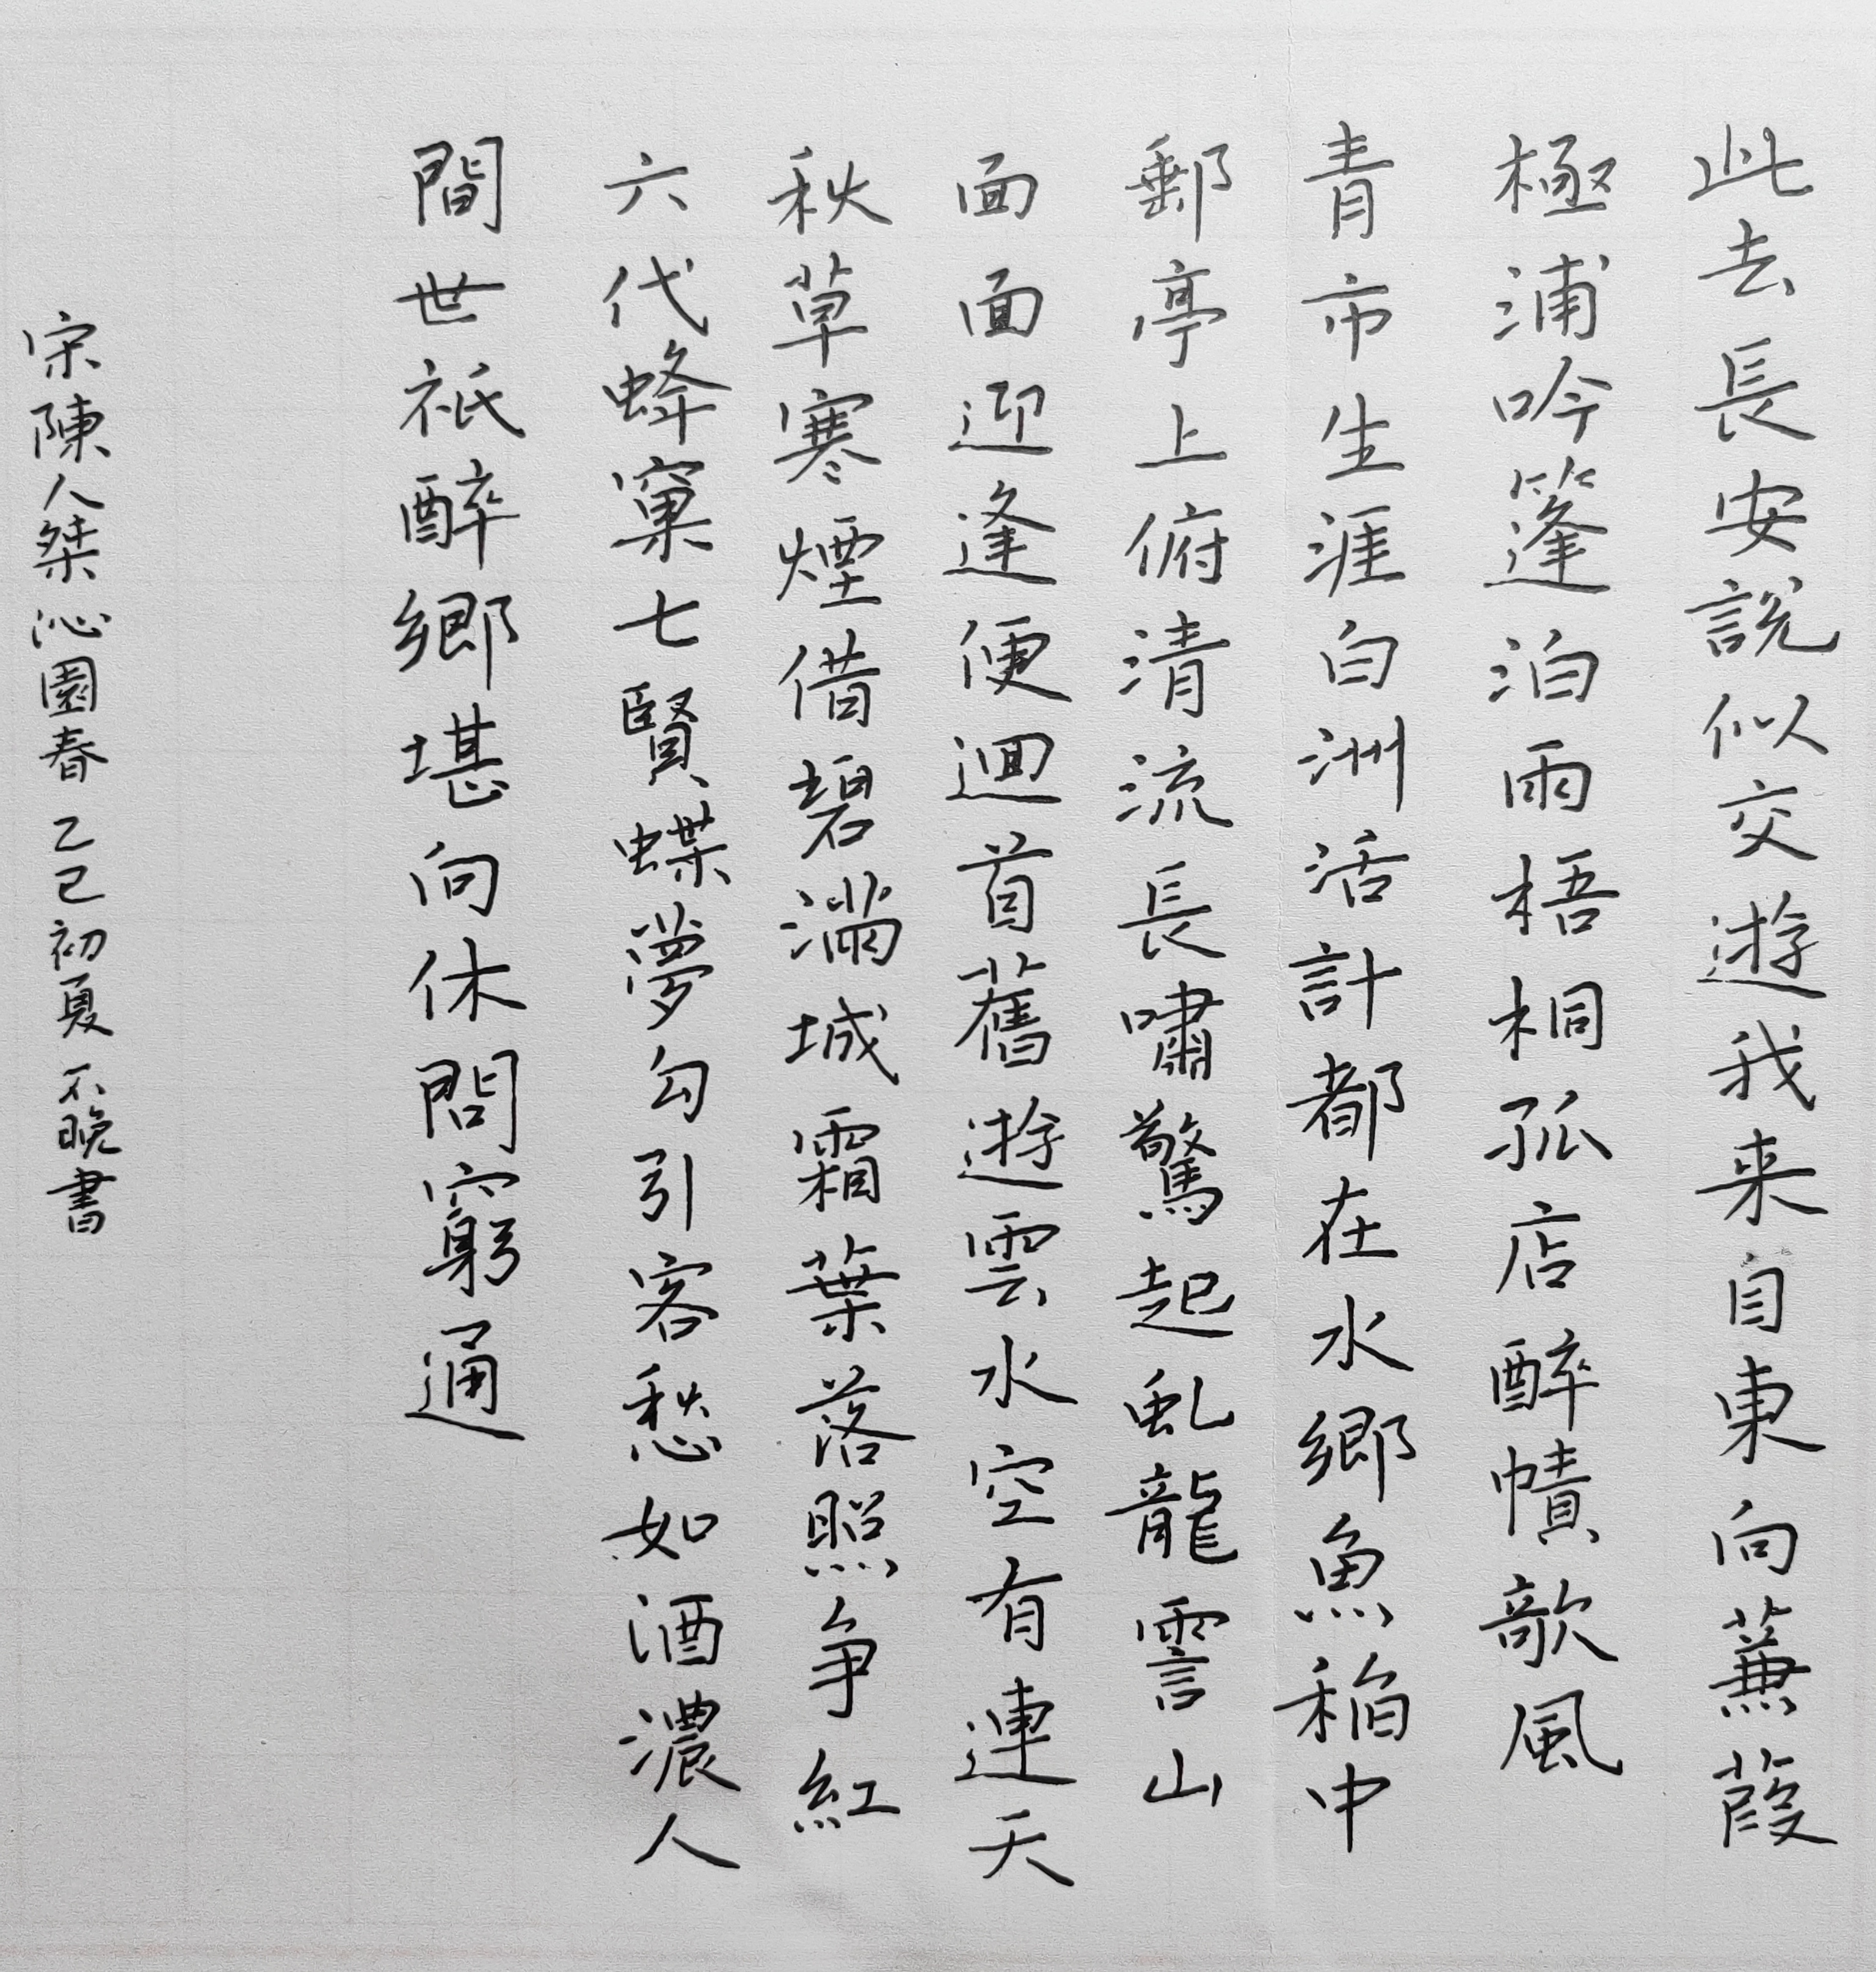 此去長安説似交遊我来自東向蒹葭
極浦吟篷泊雨梧桐孤店醉幘歌風
青市生涯白洲活計都在水鄉魚稻中
郵亭上俯清流長嘯驚起虬龍雲山
面面迎逢便迴首舊遊雲水空有連天
秋草寒煙借碧滿城霜葉落照争紅
六代蜂窠七賢蝶夢勾引客愁如酒濃人
間世祇醉鄉堪向休問窮通
宋陳人桀沁園春 乙巳初夏 不晚書